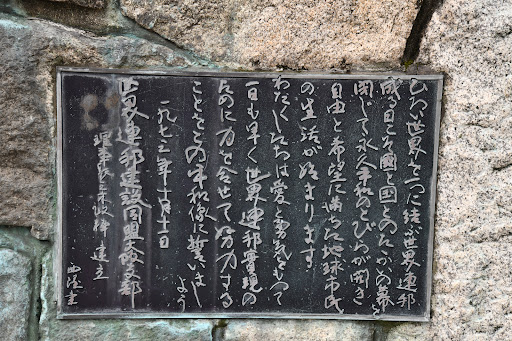 ひろい世界を一つに結ぶ世界連邦
成る日こそ國と國とのたゝかいの幕を
閉じて永久平和のとびらが開き
自由と希望に満ちた地球市民
の生活が始まります
わたくしたちは愛と勇気をもって
一日も早く世界連邦実現の
ために力を合せて努力する
ことをこの平和像に誓いましよう
一九七五年十月十二日
世界連邦建設同盟大阪支部
理事長 建立
西陵書